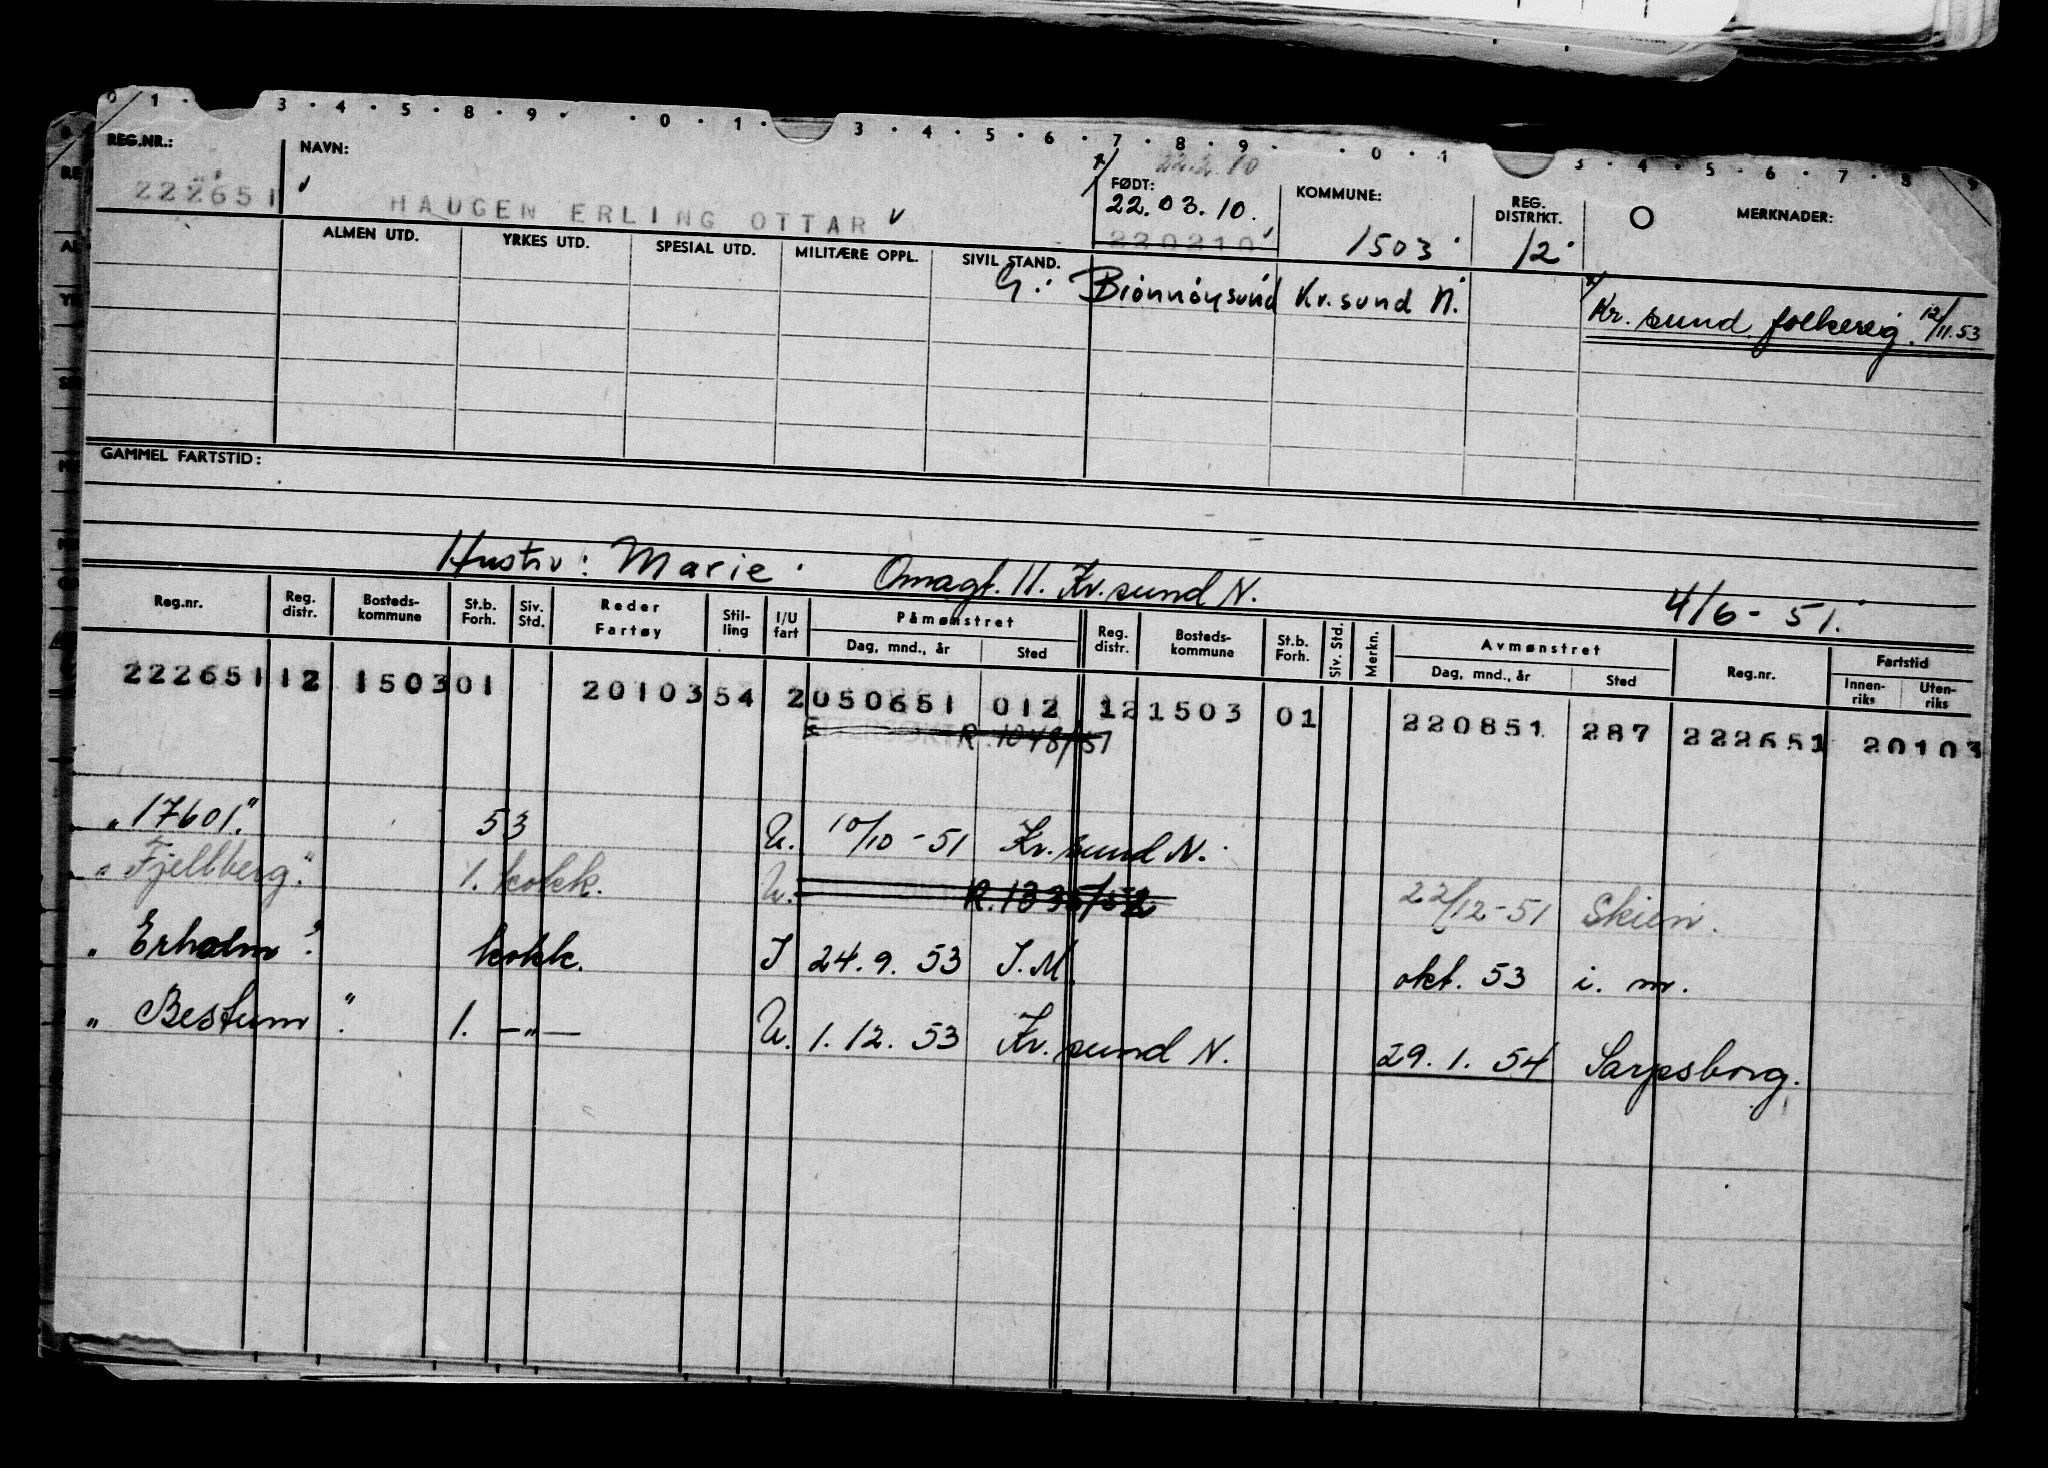 0 1 · 3 · 4 · 5 · 8 · 9 · · 0 · 1 · 3 · 4 · 5 · 6 · 7 · 8 · 9 · · 0 · 1 3 · 4 · 5 · 6 · 7 · 8 · 9
REG.NR.: NAVN: 22.2.10
FØDT: KOMMUNE: REG. DISTRIKT. MERKNADER:
222651 HAUGEN ERLING OTTAR 22.03.10. 1503 12
220210
ALMEN UTD. YRKES UTD. SPESIAL UTD. MILITÆRE OPPL. SIVIL STAND.
G. Brønnøysund Kr.sund N. Kr. sund folkereg. 12/11.53
GAMMEL FARTSTID:
Hustru: Marie Omagt. 11. Kr.sund N. 4/6-51.
Reg.nr. Reg. distr. Bosteds-kommune St.b. Forh. Siv. Std. Reder Fartøy Stil-ling I/U fart Påmønstret Reg. distr. Bosteds-kommune St.b. Forh. Siv. Std. Merkn. Avmønstret Reg.nr. Fartstid
Dag, mnd., år Sted Dag, mnd., år Sted Innen-riks Uten-riks
222651 12 1503 01 20103 54 2 050651 012 12 1503 01 220851 287 222651 20103
R. 1048/51
"17601." 53 U. 10/10-51 Kr. sund N.
"Fjellberg." 1. kokk. U. R. 1335/52 22/12-51 Skien.
"Erholm" kokk. I 24.9.53 I.M. okt. 53 i. m.
"Bestum" 1. —"— U. 1.12.53 Kr. sund N. 29.1.54 Sarpsborg.